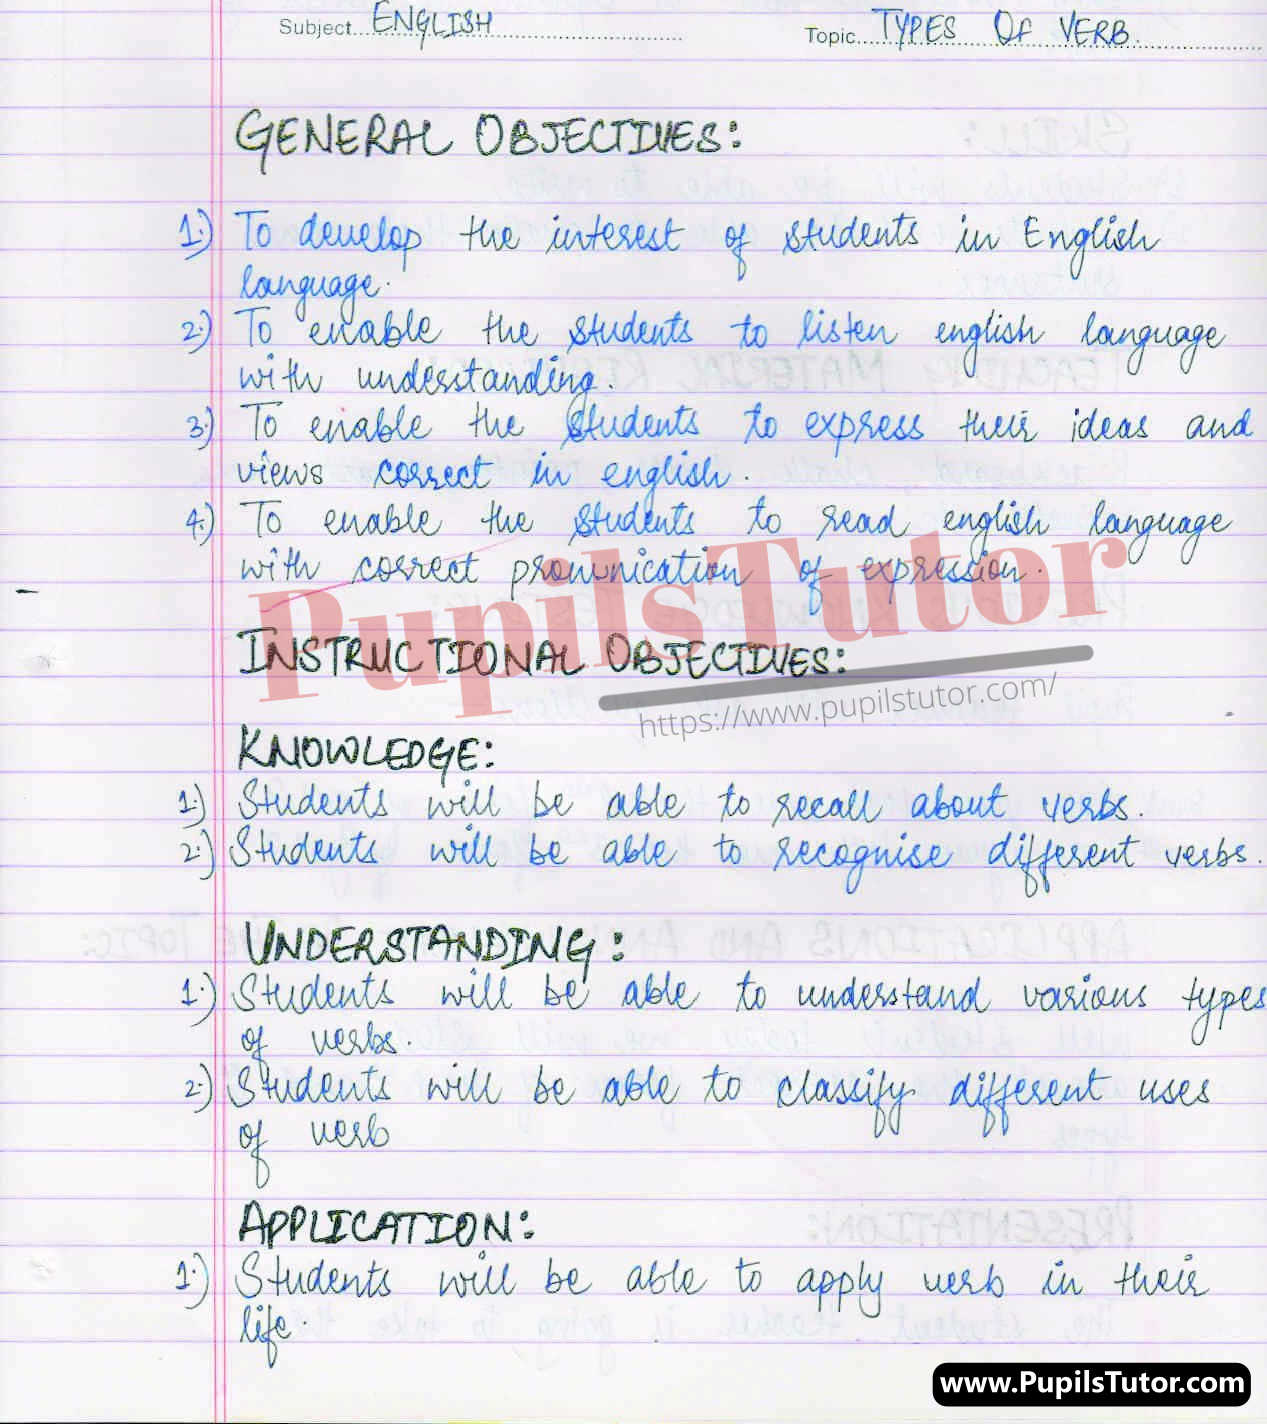 Subject ENGLISH Topic TYPES OF VERB.
GENERAL OBJECTIVES:
1.) To develop the interest of students in English
language.
2.) To enable the students to listen english language
with understanding.
3.) To enable the students to express their ideas and
views correct in english.
4.) To enable the students to read english language
with correct pronunication of expression.
PupilsTutor
INSTRUCTIONAL OBJECTIVES:
https://www.pupilstutor.com/
KNOWLEDGE:
1.) Students will be able to recall about verbs.
2.) Students will be able to recognise different verbs.
UNDERSTANDING:
1.) Students will be able to understand various types
of verbs.
2.) Students will be able to classify different uses
of verb
APPLICATION:
1.) Students will be able to apply verb in their
life.
www.PupilsTutor.com